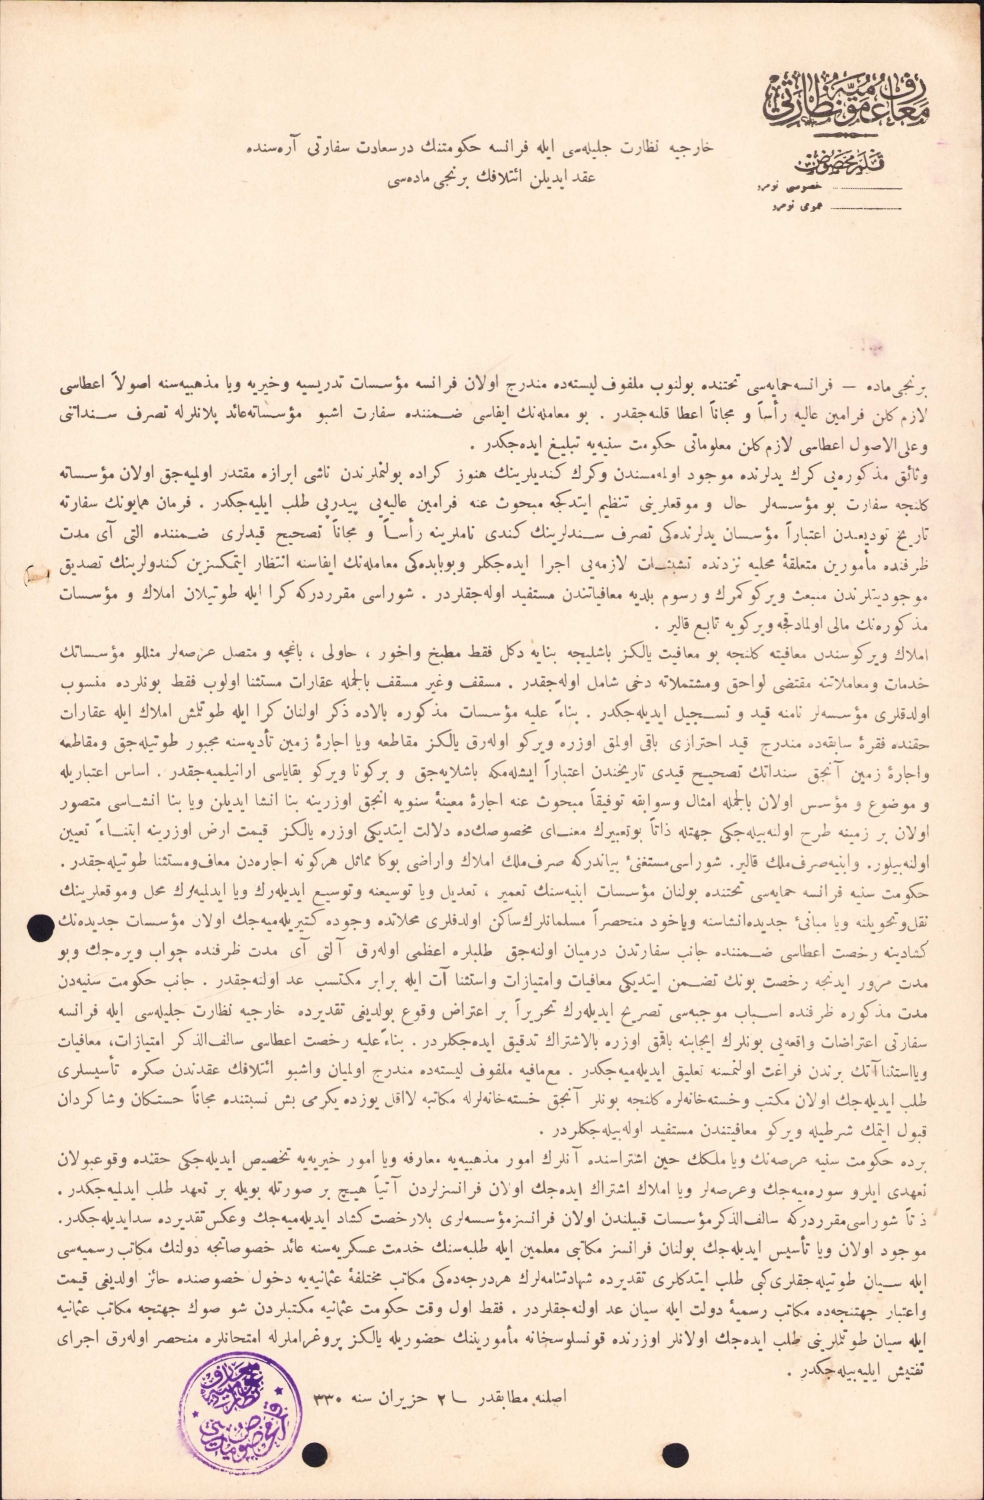 معارف عمومیه نظارتی
قلم مخصوص
خصوصی نومرو
عمومی نومرو
خارجیه نظارت جلیله‌سی ایله فرانسه حکومتنك درسعادت سفارتی آره‌سنده
عقد ایدیلن ائتلافك برنجی ماده‌سی
برنجی ماده — فرانسه حمایه‌سی تحتنده بولنوب ملفوف لیسته‌ده مندرج اولان فرانسه مؤسسات تدریسیه وخیریه ویا مذهبیه‌سنه اصولاً اعطاسی
لازم کلن فرامین عالیه رأساً و مجاناً اعطا قلنه‌جقدر . بو معامله‌نك ایفاسی ضمننده سفارت اشبو مؤسساته عائد پلانلرله تصرف سنداتنی
وعلی‌الاصول اعطاسی لازم کلن معلوماتی حکومت سنیه‌یه تبلیغ ایده‌جکدر .
وثائق مذکوره‌یی کرك یدلرنده موجود اولمه‌مسندن وکرك کندیلرینك هنوز کراده بولنملرندن ناشی ابرازه مقتدر اولمیه‌جق اولان مؤسساته
کلنجه سفارت بو مؤسسه‌لر حال و موقعلرینی تنظیم ایتدکجه مبحوث عنه فرامین عالیه‌یی پیدرپی طلب ایلیه‌جکدر . فرمان همایونك سفارته
تاریخ تودیعندن اعتباراً مؤسسان یدلرنده‌کی تصرف سندلرینك کندی ناملرینه رأساً و مجاناً تصحیح قیدلری ضمننده التی آی مدت
ظرفنده مأمورین متعلقهٔ محلیه نزدنده تشبثات لازمه‌یی اجرا ایده‌جکلر وبوبابده‌کی معامله‌نك ایفاسنه انتظار ایتمکسزین کندولرینك تصدیق
موجودیتلرندن منبعث ویرکو کمرك و رسوم بلدیه معافیاتندن مستفید اوله‌جقلردر . شوراسی مقرردرکه کرا ایله طوتیلان املاك و مؤسسات
مذکوره‌نك مالی اولمادقجه ویرکویه تابع قالیر .
املاك ویرکوسندن معافیته کلنجه بو معافیت یالکز باشلیجه بنایه دکل فقط مطبخ واخور ، حاولی ، باغچه و متصل عرصه‌لر مثللو مؤسساتك
خدمات ومعاملاتنه مقتضی لواحق ومشتملاته دخی شامل اوله‌جقدر . مسقف وغیر مسقف بالجمله عقارات مستثنا اولوب فقط بونلرده منسوب
اولدقلری مؤسسه‌لر نامنه قید و تسجیل ایدیله‌جکدر . بناءً علیه مؤسسات مذکوره بالاده ذکر اولنان کرا ایله طوتلمش املاك ایله عقارات
حقنده فقرهٔ سابقه‌ده مندرج قید احترازی باقی اولمق اوزره ویرکو اوله‌رق یالکز مقاطعه ویا اجارهٔ زمین تأدیه‌سنه مجبور طوتیله‌جق ومقاطعه
واجارهٔ زمین آنجق سنداتك تصحیح قیدی تاریخندن اعتباراً ایشله‌مکه باشلایه‌جق و برکونا ویرکو بقایاسی ارانیلمیه‌جقدر . اساس اعتباریله
و موضوع و مؤسس اولان بالجمله امثال وسوابقه توفیقاً مبحوث عنه اجارهٔ معینهٔ سنویه انجق اوزرینه بنا انشا ایدیلن ویا بنا انشاسی متصور
اولان بر زمینه طرح اولنه‌بیله‌جکی جهتله ذاتاً بوتعبیرك معنای مخصوصنكده دلالت ایتدیکی اوزره یالکز قیمت ارض اوزرینه ابتناءً تعیین
اولنه‌بیلور. وابنیه صرف ملك قالیر. شوراسی مستغنیٔ بیاندرکه صرف ملك املاك واراضی بوکا مماثل هرکونه اجاره‌دن معاف ومستثنا طوتیله‌جقدر .
حکومت سنیه فرانسه حمایه‌سی تحتنده بولنان مؤسسات ابنیه‌سنك تعمیر ، تعدیل ویا توسیعنه وتوسیع ایدیله‌رك ویا ایدلمیه‌رك محل وموقعلرینك
نقل وتحویلنه ویا مبانیٔ جدیده انشاسنه ویاخود منحصراً مسلمانلرك ساکن اولدقلری محلاتده وجوده کتیریله‌میه‌جك اولان مؤسسات جدیده‌نك
کشادینه رخصت اعطاسی ضمننده جانب سفارتدن درمیان اولنه‌جق طلبلره اعظمی اوله‌رق آلتی آی مدت ظرفنده جواب ویره‌جك وبو
مدت مرور ایدنجه رخصت بونك تضمن ایتدیکی معافیات وامتیازات واستثناآت ایله برابر مکتسب عد اولنه‌جقدر . جانب حکومت سنیه‌دن
مدت مذکوره ظرفنده اسباب موجبه‌سی تصریح ایدیله‌رك تحریراً بر اعتراض وقوع بولدیغی تقدیرده خارجیه نظارت جلیله‌سی ایله فرانسه
سفارتی اعتراضات واقعه‌یی بونلرك ایجابنه باقمق اوزره بالاشتراك تدقیق ایده‌جکلردر . بناءً علیه رخصت اعطاسی سالف‌الذکر امتیازات، معافیات
ویااستثناآتك برندن فراغت اولنمسنه تعلیق ایدیله‌میه‌جکدر . مع‌مافیه ملفوف لیسته‌ده مندرج اولمیان واشبو ائتلافك عقدندن صکره تأسیسلری
طلب ایدیله‌جك اولان مکتب وخسته‌خانه‌لره کلنجه بونلر آنجق خسته‌خانه‌لرله مکاتبه لااقل یوزده یکرمی بش نسبتنده مجاناً خستکان وشاکردان
قبول ایتمك شرطیله ویرکو معافیتندن مستفید اوله‌بیله‌جکلردر .
برده حکومت سنیه عرصه‌نك ویا ملکك حین اشتراسنده آنلرك امور مذهبیه‌یه معارفه ویا امور خیریه‌یه تخصیص ایدیله‌جکی حقنده وقوعبولان
تعهدی ایلرو سوره‌میه‌جك وعرصه‌لر ویا املاك اشتراك ایده‌جك اولان فرانسزلردن آتیاً هیچ بر صورتله بویله بر تعهد طلب ایدلمیه‌جکدر .
ذاتاً شوراسی مقرردرکه سالف‌الذکر مؤسسات قبیلندن اولان فرانسز مؤسسه‌لری بلارخصت کشاد ایدیله‌میه‌جك وعکس تقدیرده سدایدیله‌جکدر.
موجود اولان ویا تأسیس ایدیله‌جك بولنان فرانسز مکاتبی معلمین ایله طلبه‌سنك خدمت عسکریه‌سنه عائد خصوصاتجه دولتك مکاتب رسمیه‌سی
ایله سیان طوتیله‌جقلری کبی طلب ایتدکلری تقدیرده شهادتنامه‌لرك هردرجه‌ده‌کی مکاتب مختلفهٔ عثمانیه‌یه دخول خصوصنده حائز اولدیغی قیمت
واعتبار جهتنجه‌ده مکاتب رسمیهٔ دولت ایله سیان عد اولنه‌جقلردر . فقط اول وقت حکومت عثمانیه مکتبلردن شو صوك جهتجه مکاتب عثمانیه
ایله سیان طوتلملرینی طلب ایده‌جك اولانلر اوزرنده قونسلوسخانه مأمورینك حضوریله یالکز پروغراملرله امتحانلره منحصر اوله‌رق اجرای
تفتیش ایلیه‌بیله‌جکدر .
اصلنه مطابقدر ٢ حزیران سنه ٣٣٠